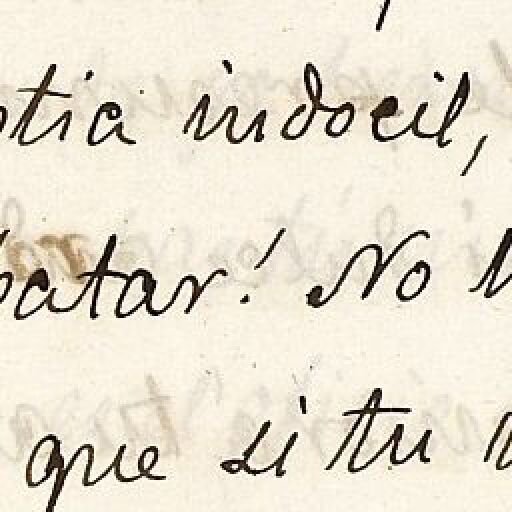 otia indocil,
batar! No
que si tu